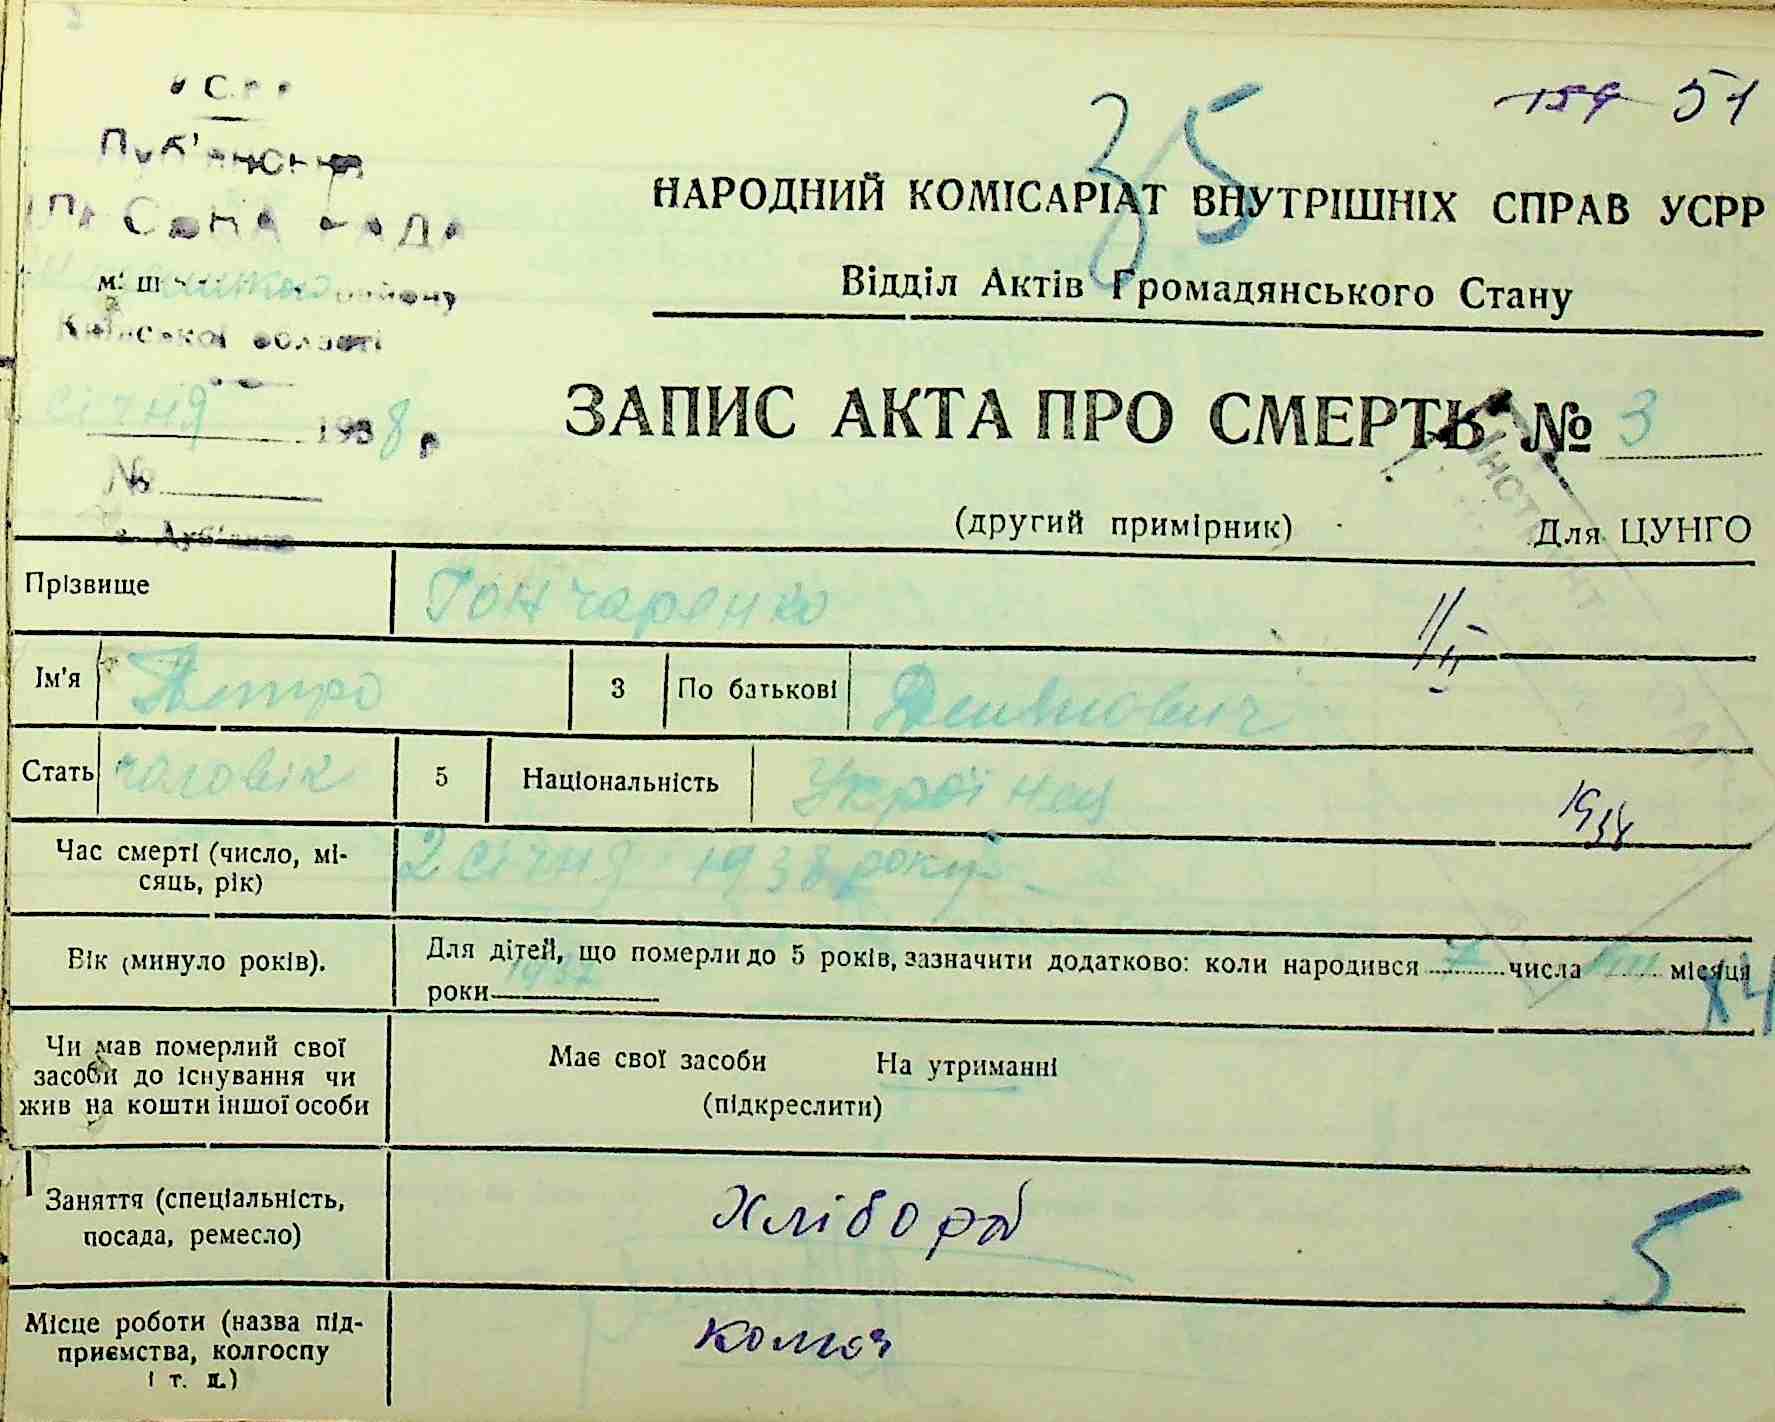 154 51
35
НАРОДНИЙ КОМІСАРІАТ ВНУТРІШНІХ СПРАВ УСРР
Відділ Актів Громадянського Стану
СОНА РАДА
району
Київської області
січня 1938 р
№
ЗАПИС АКТА ПРО СМЕРТЬ № 3
(другий примірник) Для ЦУНГО
Прізвище Гончаренко
Ім'я Петро 3 По батькові Демянович
Стать чоловік 5 Національність Українец
1938
Час смерті (число, мі-
сяць, рік) 2 січня 1938 року
Вік (минуло років). Для дітей, що померли до 5 років, зазначити додатково: коли народився 7 числа місяця
роки 1937
Чи мав померлий свої
засоби до існування чи
жив на кошти іншої особи
Має свої засоби На утриманні
(підкреслити)
Заняття (спеціальність,
посада, ремесло) Хлібороб
5
Місце роботи (назва під-
приємства, колгоспу
і т. п.)